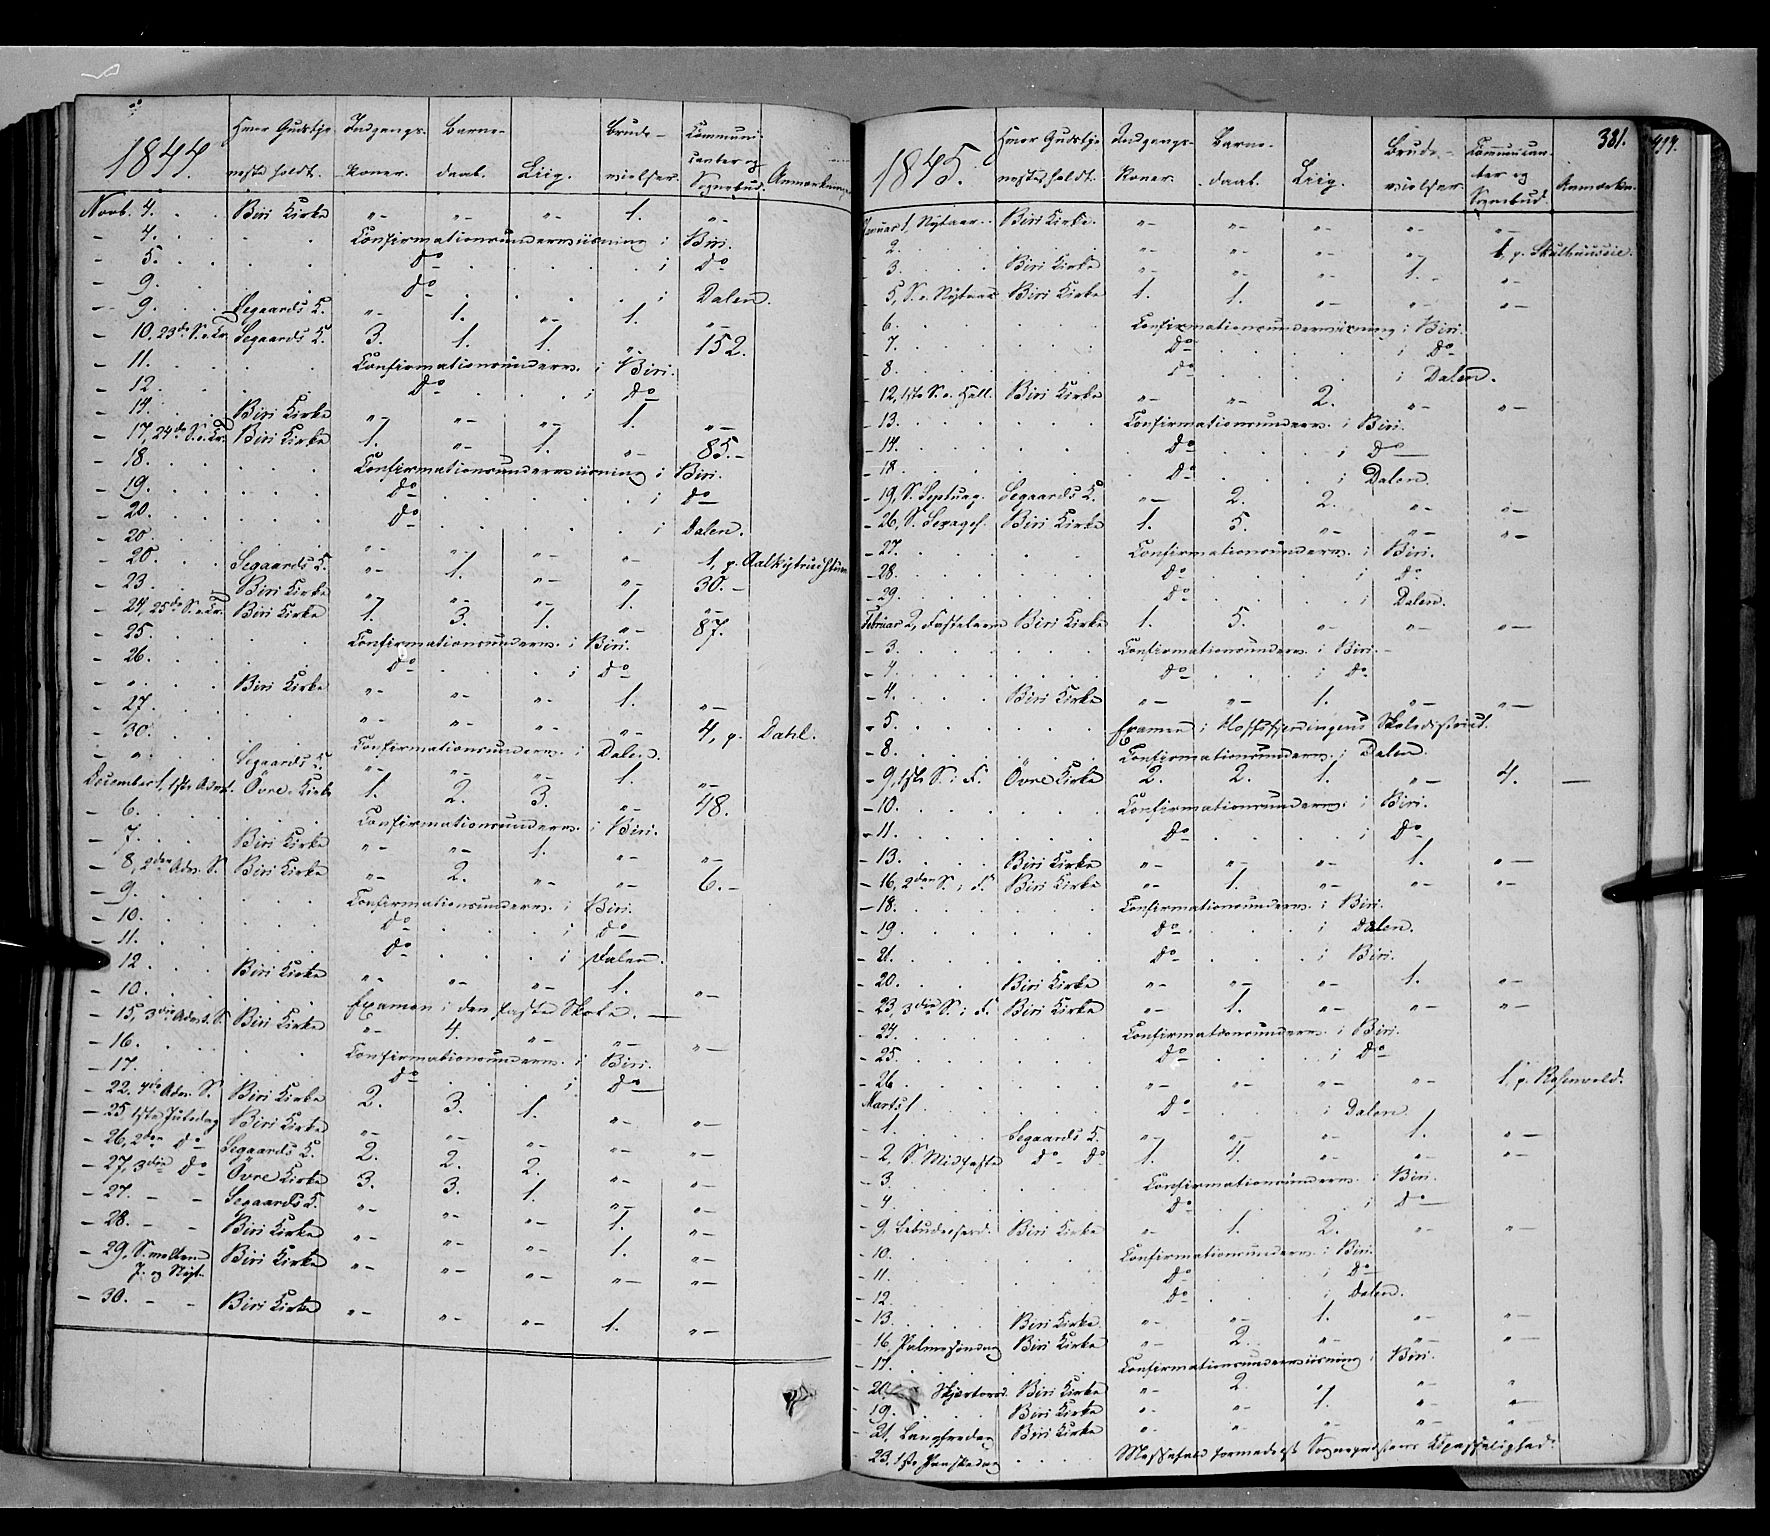 1844. Hvor Gudstje- Indgangs- Barne- Brude- Communi-
neste holdt. Koner. daab. Liig. vielser. canter og Sognebud. Anmærkninger
Novb. 4. . . Biri Kirke "- "- "- 1. "-
- 4. . . . Confirmationsunderviisning i Biri.
- 5. . . . Do . . . i Do
- 9. . . . Do . . . i Dalen.
- 9. . . Segaards K. "- 1. "- 1. "-
- 10, 23de S. e. Tr. Segaards K. 3. 1. 1. "- 152.
- 11. . . . Confirmationsunderv. i Biri.
- 12. . . . Do . . . i Do
- 14. . . Biri Kirke "- "- "- 1. "-
- 17, 24de S. e. Tr. Biri Kirke 1. "- 1. "- 85.-
- 18. . . . Confirmationsunderviisning i Biri.
- 19. . . . Do . . . i Do
- 20. . . . Do . . . i Dalen.
- 20. . . . "- "- "- "- 1, p.
- 20. . . Segaards K. "- 1. "- "- 30.-
- 23. . . Biri Kirke "- "- "- 1. "-
- 24, 25de S. e. Tr. Biri Kirke 1. 3. 1. "- 87.
- 25. . . . Confirmationsunderv. i Biri.
- 26. . . . Do . . . i Do
- " . . Biri Kirke "- "- "- 1. "-
- 27. . . . "- "- "- "- 4, p. Dahl.
- 30. . . . Confirmationsunderv. i Dalen.
- " . . Segaards K. "- "- "- 1. "-
December 1, 1ste Advt. Övre Kirke 1. 2. 3. "- 48.
- 6. . . . Confirmationsunderv. i Biri.
- 7. . . Biri Kirke "- "- 1. "- "-
- 8, 2den Adv. S. Biri Kirke "- 2. "- "- 6.-
- 9. . . . Confirmationsunderv. i Biri.
- 10. . . . Do . . . i Do
- 11. . . . Do . . . i Dalen.
- 12. . . Biri Kirke "- "- "- 1. "-
- 10. . . . Examen i den faste Skole. —
- 15, 3die Advt. S. Biri Kirke "- 4. "- "- "-
- 16. . . . Confirmationsunderv. i Biri.
- 17. . . . Do . . . i Do
- 22. 4de Adv. S. Biri Kirke 2. 3. 1. "- "-
- 25 1ste Juledag Biri Kirke "- "- "- "- "-
- 26, 2den Do Segaards K. 2. 2. 2. "- "-
- 27, 3die Do Övre Kirke 3. 3. 1. "- "-
- 27. - - Segaards K. "- "- "- 1. "-
- 28. - - Biri Kirke "- "- "- 1. "-
- 29, S. mellem Biri Kirke "- "- "- "- "-
J. og Nyt.
- 30. - - Biri Kirke "- "- "- 1. "-
381. 419.
1845. Hvor Gudstje- Indgangs- Barne- Brude- Communican-
neste holdt. Koner. daab. Liig. vielser. ter og Sognebud. Anmærkn.
Januar 1, Nytaar. Biri Kirke. "- "- "- "- "-
- 2. . . . "- "- "- "- 1, p.
- 3. . . Biri Kirke "- "- "- 1. "-
- 5, S. e. Nytaar Biri Kirke 1. 1. "- "- "-
- 6. . . . Confirmationsunderviisning i Biri.
- 7. . . . Do . . . i Do
- 8. . . . Do . . . i Dalen.
- 12, 1ste S. e. Hell. Biri Kirke "- "- 2. "- "-
- 13. . . . Confirmationsunderv. i Biri.
- 14. . . . Do . . . i Do
- 18. . . . Do . . . i Dalen.
- 19, S. Septuag. Segaards K. "- 2. 2. "- "-
- 26, S. Sexages. Biri Kirke 1. 5. "- "- "-
- 27. . . . Confirmationsunderv. i Biri.
- 28. . . . Do . . . i Do
- 29. . . . Do . . . i Dalen.
Februar 2, Fastelavn Biri Kirke 1. 5. "- "- "-
- 3. . . . Confirmationsunderv. i Biri.-
- 4. . . . Do . . . i Do
- 4. . . Biri Kirke "- "- 1. "- "-
- 5. . . . Examen i Skoledistrict.
- 8. . . . Confirmationsunderv. i Dalen.
- 9, 1ste S. i F. Övre Kirke 2. 2. 1. "- 4. —
- 10. . . . Confirmationsunderv. i Biri.
- 11. . . . Do . . . i Do
- 13. . . Biri Kirke "- "- "- 1. "-
- 16, 2den S. i F. Biri Kirke "- 1. "- "- "-
- 18. . . . Confirmationsunderv. i Biri.
- 19. . . . Do . . . i Dalen.
- 21. . . . Do . . . i Biri.
- 20. . . Biri Kirke "- "- "- 1. "-
- 23, 3die S. i F. Biri Kirke "- 1. "- "- "-
- 24. . . . Confirmationsunderv. i Biri.
- 25. . . . Do . . . i Do
- 26 . . . "- "- "- "- 1, p. Rosenvold.
Marts 1 . . . Do . . . i Dalen.
- 1. . . Segaards K. "- "- "- 1. "-
- 2, S. Midfaste Do Do 1. 4. "- "- "-
- 3. . . . Confirmationsunderv. i Biri.
- 4. . . . Do . . . i Do
- 9, Bebudelsesd. Biri Kirke "- 1. 2. "- "-
- 10. . . . Confirmationsunderv. i Biri.
- 11. . . . Do . . . i Do
- 12. . . . Do . . . i Dalen.
- 13. . . Biri Kirke "- "- 1. "- "-
16, Palmesöndag Biri Kirke "- 2. "- "- "-
- 17. . . . Confirmationsunderviisning i Biri.
- 20 Skjærtorsd. Biri Kirke "- 2. "- "- "
- 19. . . Biri Kirke "- "- 1. "- "-
- 21, Langfredag Biri Kirke "- "- "- "- "-
- 23. 1ste Paaskedag . . . Messefald formedelst Sognepræstens Upasselighed.